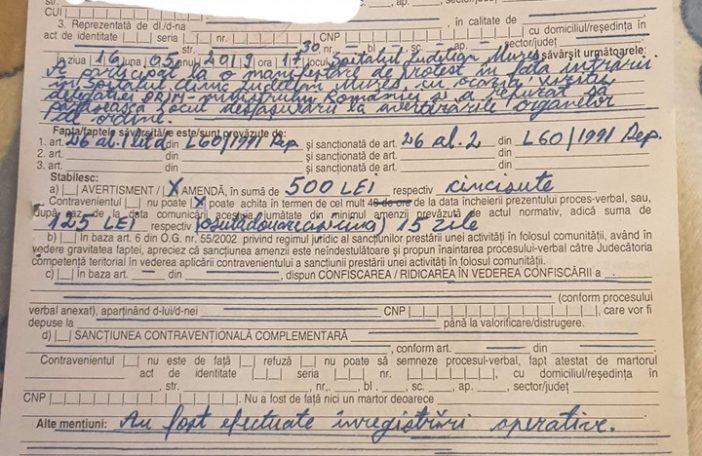 CUI |_|_|_|_|_|_|_|_|
3. Reprezentată de dl./d-na , în calitate de
act de identitate |_|_| seria |_|_| nr. CNP , cu domiciliul/reşedinţa în
, str. nr. bl sc. ap. sector/judeţ
În ziua 16 luna 05 anul 2019 ora 17 30 locul Spitalul Judeţean Mureş săvârşit următoarele:
a participat la o manifestare de protest în faţa intrării
în Spitalul Clinic Judeţean Mureş, cu ocazia vizitei
României şi a refuzat să
părăsească locul desfăşurării la avertizările organelor
de ordine.
Fapta/faptele săvârşită/e este/sunt prevăzute de:
1. art. 26 al. 1 lit d din L60/1991 Rep. şi sancţionată de art. 26 al. 2 din L60/1991 Rep.
2. art. din şi sancţionată de art. din
3. art. din şi sancţionată de art. din
Stabilesc:
a) |_| AVERTISMENT / |X| AMENDĂ, în sumă de 500 LEI respectiv cincisute
Contravenientul |_| nu poate |X| poate achita în termen de cel mult 48 de ore de la data încheierii prezentului proces-verbal, sau,
după caz, de la data comunicării acestuia jumătate din minimul amenzii prevăzută de actul normativ, adică suma de
125 LEI respectiv 15 zile
b) |_| În baza art. 6 din O.G. nr. 55/2002 privind regimul juridic al sancţiunilor prestării unei activităţi în folosul comunităţii, având în
vedere gravitatea faptei, apreciez că sancţiunea amenzii este neîndestulătoare şi propun înaintarea procesului-verbal către Judecătoria
competentă teritorial în vederea aplicării contravenientului a sancţiunii prestării unei activităţi în folosul comunităţii.
c) |_| În baza art. din , dispun CONFISCAREA / RIDICAREA ÎN VEDEREA CONFISCĂRII a
(conform procesului
verbal anexat), aparţinând d-lui/d-nei CNP , care vor fi
depuse la până la valorificare/distrugere.
d) |_| SANCŢIUNEA CONTRAVENŢIONALĂ COMPLEMENTARĂ
, conform art. din
Contravenientul |_| nu este de faţă |_| refuză |_| nu poate să semneze procesul-verbal, fapt atestat de martorul
act de identitate seria nr. , cu domiciliul/reşedinţa în
, str. nr. bl. sc. ap. , sector/judeţ
CNP . Nu a fost de faţă nici un martor deoarece
Alte menţiuni: Au fost efectuate înregistrări operative.